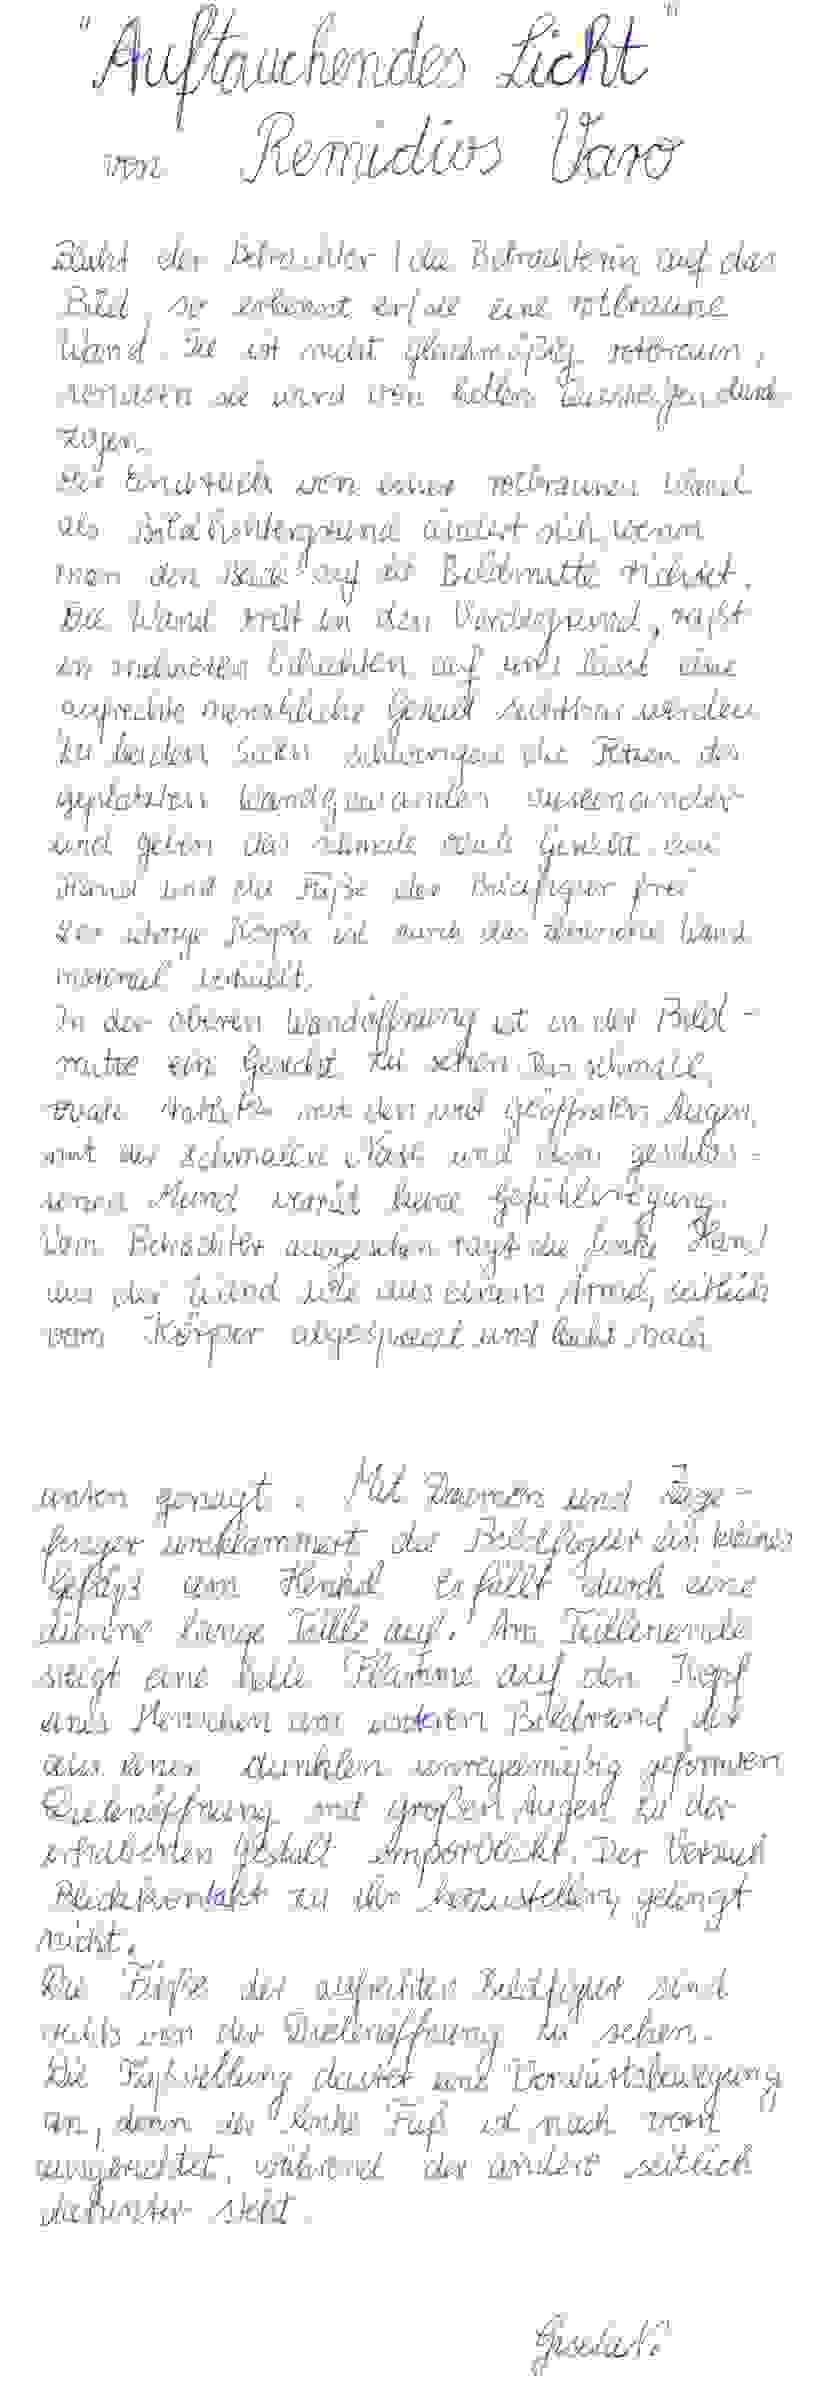 "Auftauchendes Licht"
von Remidios Varo
Blickt der Betrachter / die Betrachterin auf das
Bild, so erkennt er/sie eine rotbraune
Wand. Sie ist nicht gleichmäßig rotbraun,
sondern sie wird von hellen Querstreifen durch-
zogen.
Der Eindruck von einer rotbraunen Wand
als Bildhintergrund ändert sich, wenn
man den Blick auf die Bildmitte richtet.
Die Wand tritt in den Vordergrund, reißt
in mehreren Schichten auf und lässt eine
aufrechte menschliche Gestalt sichtbar werden.
Zu beiden Seiten schwingen die Fetzen des
geplatzten Wandgewandes auseinander
und geben das schmale ovale Gesicht, eine
Hand und die Füße der Bildfigur frei.
Der übrige Körper ist durch das Wand-
material verhüllt.
In der oberen Wandöffnung ist in der Bild-
mitte ein Gesicht zu sehen. Das schmale,
ovale Antlitz mit den weit geöffneten Augen,
mit der schmalen Nase und dem geschlos-
senen Mund verrät keine Gefühlsregung.
Vom Betrachter ausgesehen ragt die linke Hand
aus der Wand wie aus einem Ärmel, seitlich
vom Körper abgespreizt und leicht nach
unten geneigt. Mit Daumen und Zeige-
finger umklammert die Bildfigur ein kleines
Gefäß am Henkel. Es fällt durch eine
dünne lange Tülle auf. Am Tüllenende
steigt eine helle Flamme auf den Kopf
eines Menschen am unteren Bildrand, der
aus einer dunklen unregelmäßig geformten
Dielenöffnung mit großen Augen zu der
erhabenen Gestalt emporblickt. Der Versuch
Blickkontakt zu ihr herzustellen, gelingt
nicht.
Die Füße der aufrechten Bildfigur sind
rechts von der Dielenöffnung zu sehen.
Die Fußstellung deutet eine Vorwärtsbewegung
an, denn der linke Fuß ist nach vorn
ausgerichtet, während der andere seitlich
dahinter steht.